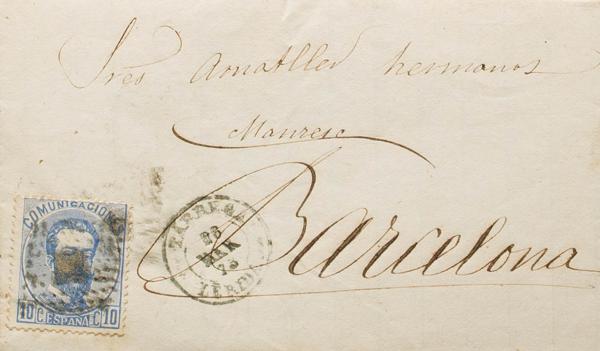 Sres Amatller hermanos
Manresa
Barcelona
COMUNICACIONES
10 C. ESPAÑA C. 10
TARREGA
26
MAR
73
LERIDA